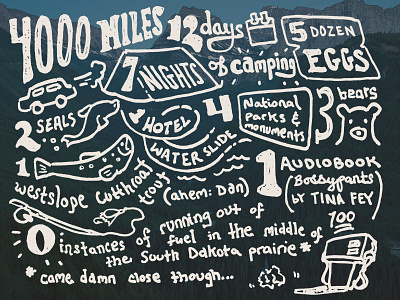 4000 MILES 12 days of camping
5 DOZEN EGGS
7 NIGHTS
2 SEALS
1 HOTEL WATER SLIDE
4 National Parks & monuments
3 bears
1 westslope cutthroat trout (ahem: Dan)
1 AUDIOBOOK
(Bossypants)
by TINA FEY
0 instances of running out of
fuel in the middle of
the South Dakota prairie*
100
* came damn close though...